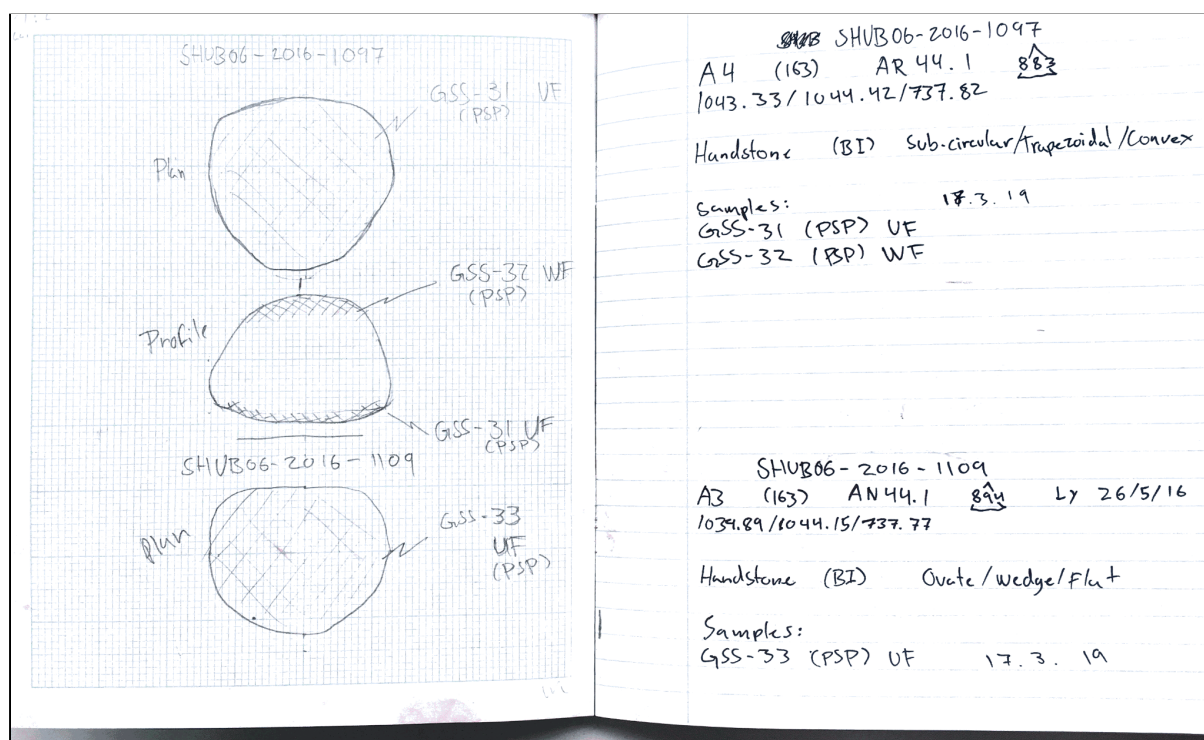 SHUB06-2016-1097
GSS-31 UF
(PSP)
Plan
GSS-32 WF
(PSP)
Profile
GSS-31 UF
(PSP)
SHUB06-2016-1109
Plan
GSS-33
UF
(PSP)
SHUB06-2016-1097
A4 (163) AR 44.1 883
1043.33/1044.42/737.82
Handstone (BI) Sub-circular/Trapezoidal/Convex
Samples: 17.3.19
GSS-31 (PSP) UF
GSS-32 (PSP) WF
SHUB06-2016-1109
A3 (163) AN44.1 894 LY 26/5/16
1039.89/1044.15/737.77
Handstone (BI) Ovate/Wedge/Flat
Samples:
GSS-33 (PSP) UF 17.3.19